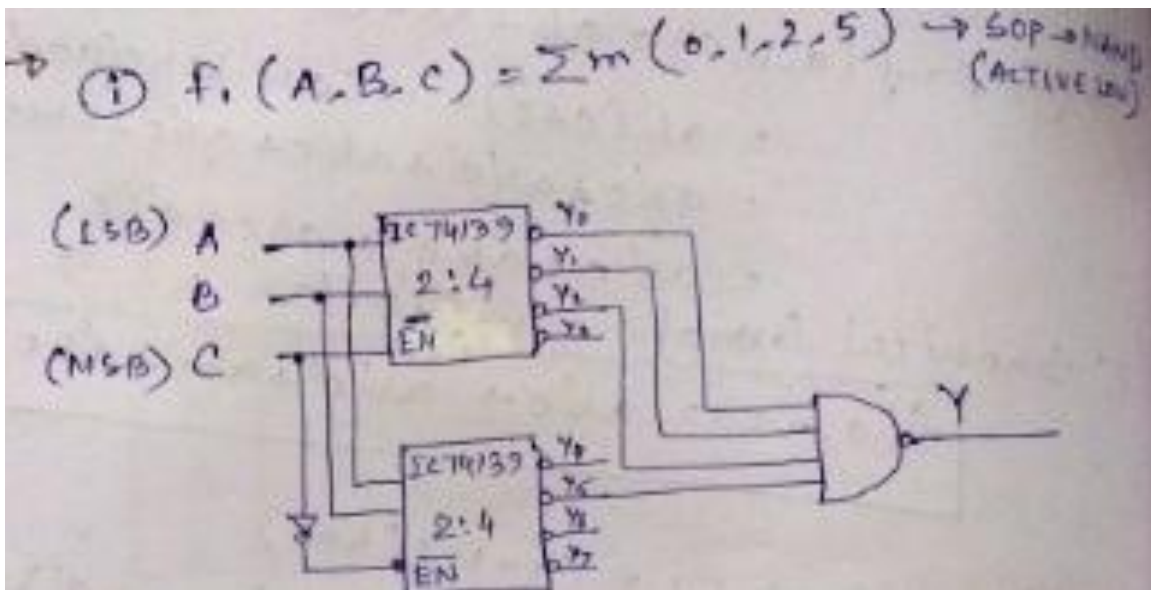 → ① f₁ (A, B, C) = Σm (0, 1, 2, 5) → SOP → NAND
(ACTIVE LOW)
(LSB) A
B
(MSB) C
IC74139
2:4
E̅N̅
Y₀
Y₁
Y₂
Y₃
Y
IC74139
2:4
E̅N̅
Y₄
Y₅
Y₆
Y₇